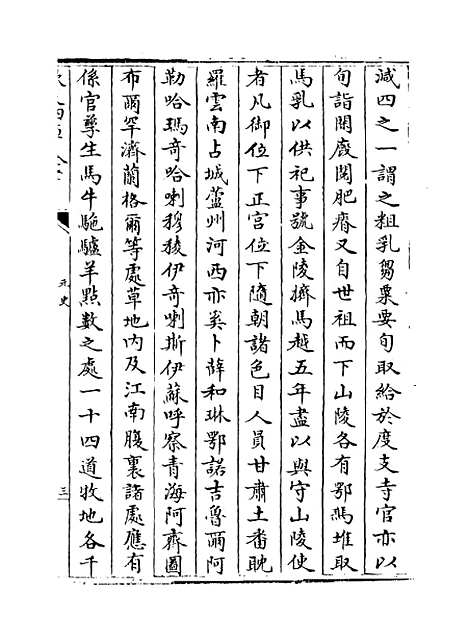 減四之一謂之粗乳芻粟要旬取給於度支寺官亦以
旬詣閑廄閱肥瘠又自世祖而下山陵各有鄂爾堆取
馬乳以供祀事號金陵擠馬越五年盡以與守山陵使
者凡御位下正宮位下隨朝諸色目人員甘肅土番耽
羅雲南占城蘆州河西亦奚卜薛和琳鄂諾吉魯爾阿
勒哈瑪奇哈喇穆稜伊奇喇斯伊蘇呼察青海阿齊圖
布爾罕濟蘭格爾等處草地內及江南腹裏諸處應有
係官孳生馬牛駞驢羊點數之處一十四道牧地各千
元史
三